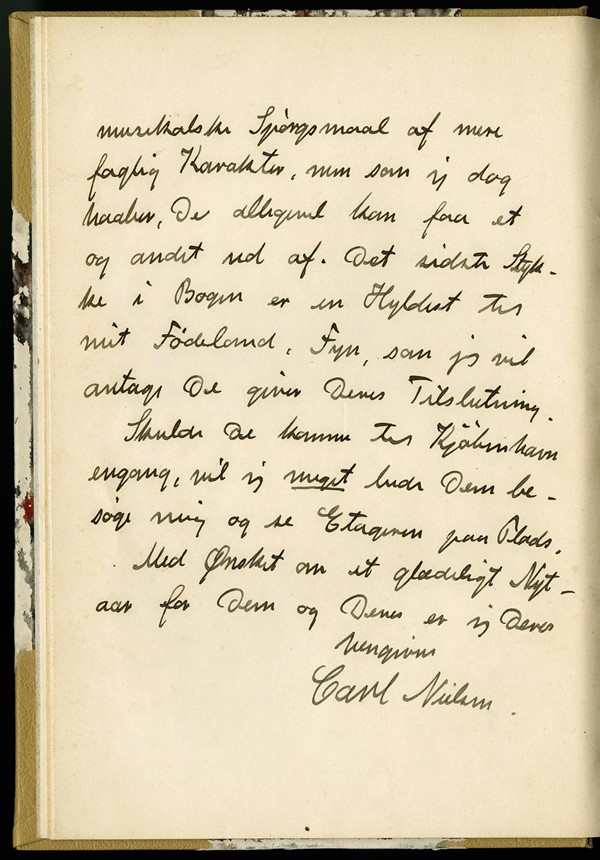 musikalske Spörgsmaal af mere
faglig Karakter, men som jeg dog
haaber, De alligevel kan faa et
og andet ud af. Det sidste Styk-
ke i Bogen er en Hyldest til
mit Födeland, Fyn, som jeg vil
antage De giver Deres Tilslutning.
Skulde De komme til Kjöbenhavn
engang, vil jeg meget bede Dem be-
söge mig og se Etageren paa Plads.
Med Ønsket om et glædeligt Nyt-
aar for Dem og Deres er jeg Deres
hengivne
Carl Nielsen.